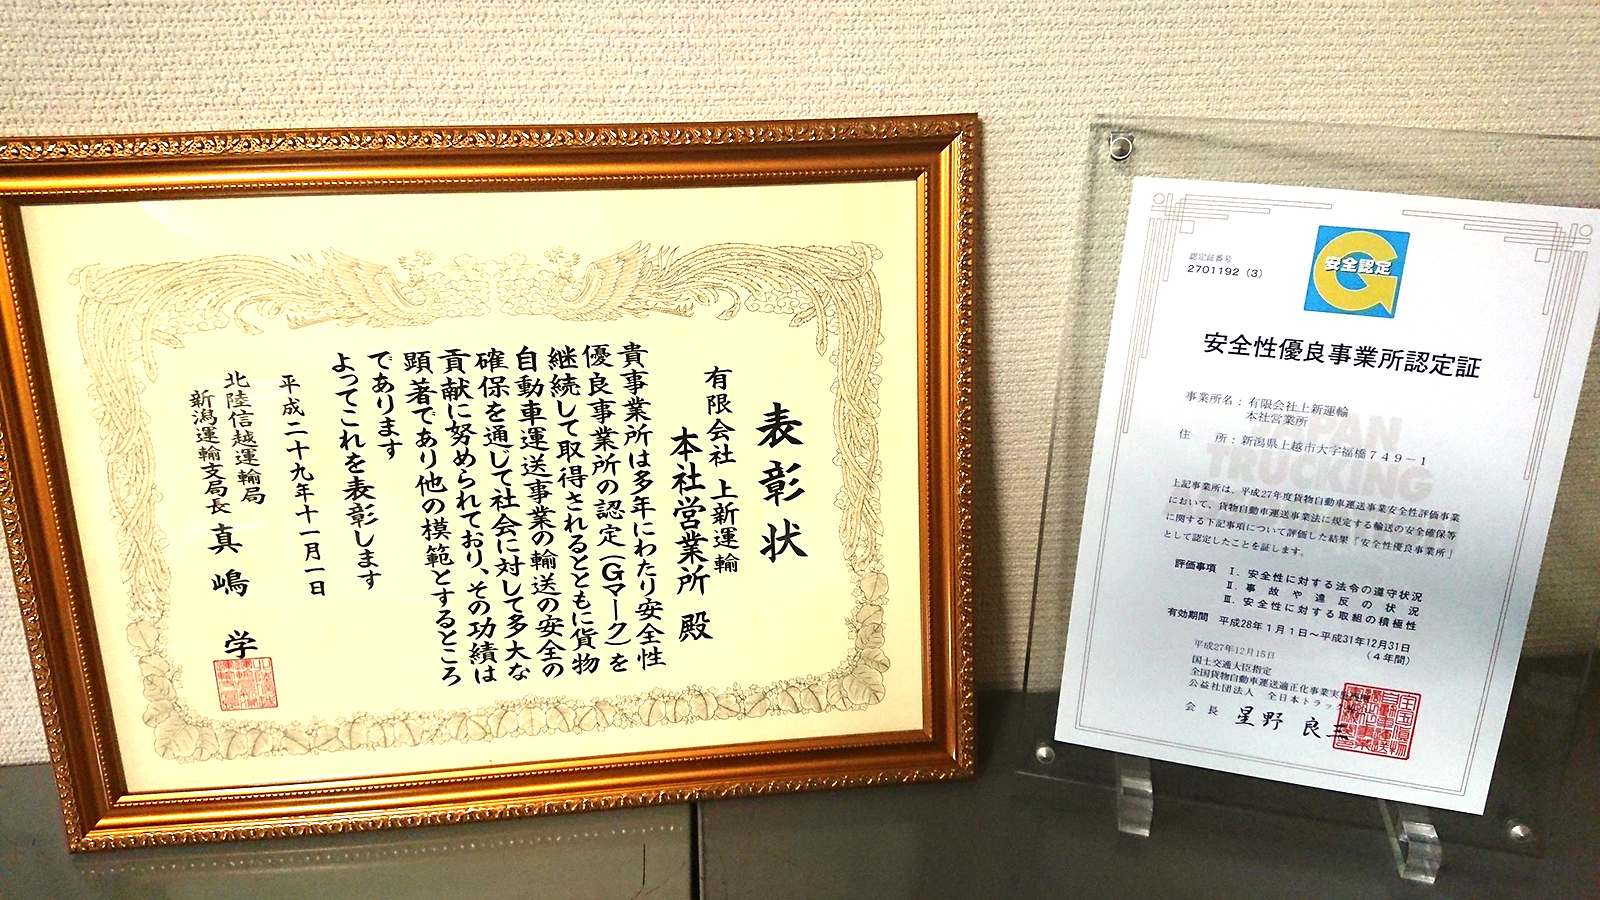 表彰状
有限会社 上新運輸
本社営業所 殿
貴事業所は多年にわたり安全性
優良事業所の認定(Gマーク)を
継続して取得されるとともに貨物
自動車運送事業の輸送の安全の
確保を通じて社会に対して多大な
貢献に努められており、その功績は
顕著であり他の模範とするところ
であります
よってこれを表彰します
平成二十九年十一月一日
北陸信越運輸局
新潟運輸支局長 真嶋 学
認定証番号
2701192(3)
安全認定
安全性優良事業所認定証
事業所名:有限会社上新運輸
本社営業所
住 所:新潟県上越市大字福橋749-1
上記事業所は、平成27年度貨物自動車運送事業安全性評価事業
において、貨物自動車運送事業法に規定する輸送の安全確保等
に関する下記事項について評価した結果「安全性優良事業所」
として認定したことを証します。
評価事項 Ⅰ.安全性に対する法令の遵守状況
Ⅱ.事故や違反の状況
Ⅲ.安全性に対する取組の積極性
有効期間 平成28年1月1日~平成31年12月31日
(4年間)
平成27年12月15日
国土交通大臣指定
全国貨物自動車運送適正化事業実施
公益社団法人 全日本トラック
会長 星野 良三